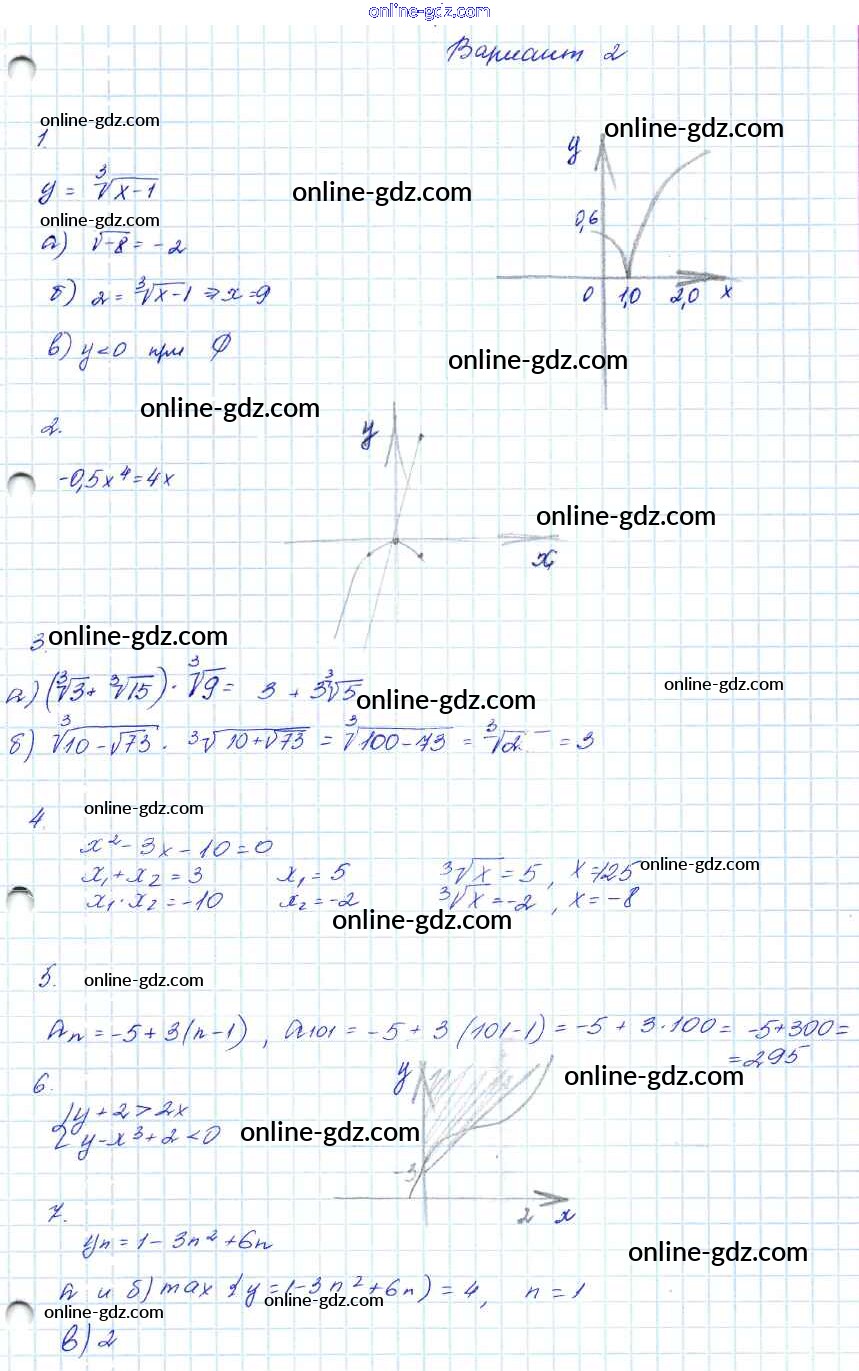 online-gdz.com
Вариант 2
online-gdz.com
1.
online-gdz.com
y
y = ∛(x-1)
online-gdz.com
online-gdz.com
0,6
а) √-8 = -2
б) 2 = ∛(x-1) ⇒ x=9
0 1,0 2,0 x
в) y<0 при Ø
online-gdz.com
online-gdz.com
2.
y
-0,5x⁴=4x
online-gdz.com
x
3.
online-gdz.com
а) (∛3 + ∛15) · ∛9 = 3 + 3∛5
online-gdz.com
online-gdz.com
б) ∛(10-√73) · ∛(10+√73) = ∛(100-73) = ∛2 = 3
4.
online-gdz.com
x²-3x-10=0
x₁+x₂=3 x₁=5 ∛x=5, x=125
online-gdz.com
x₁·x₂=-10 x₂=-2 ∛x=-2, x=-8
online-gdz.com
5.
online-gdz.com
aₙ=-5+3(n-1), a₁₀₁=-5+3(101-1)=-5+3·100= -5+300=
=295
6.
y
online-gdz.com
{y+2>2x
y-x³+2<0
online-gdz.com
-3
2 x
7.
yₙ=1-3n²+6n
online-gdz.com
а и б) max {y=1-3n²+6n) = 4, n=1
online-gdz.com
online-gdz.com
в) 2